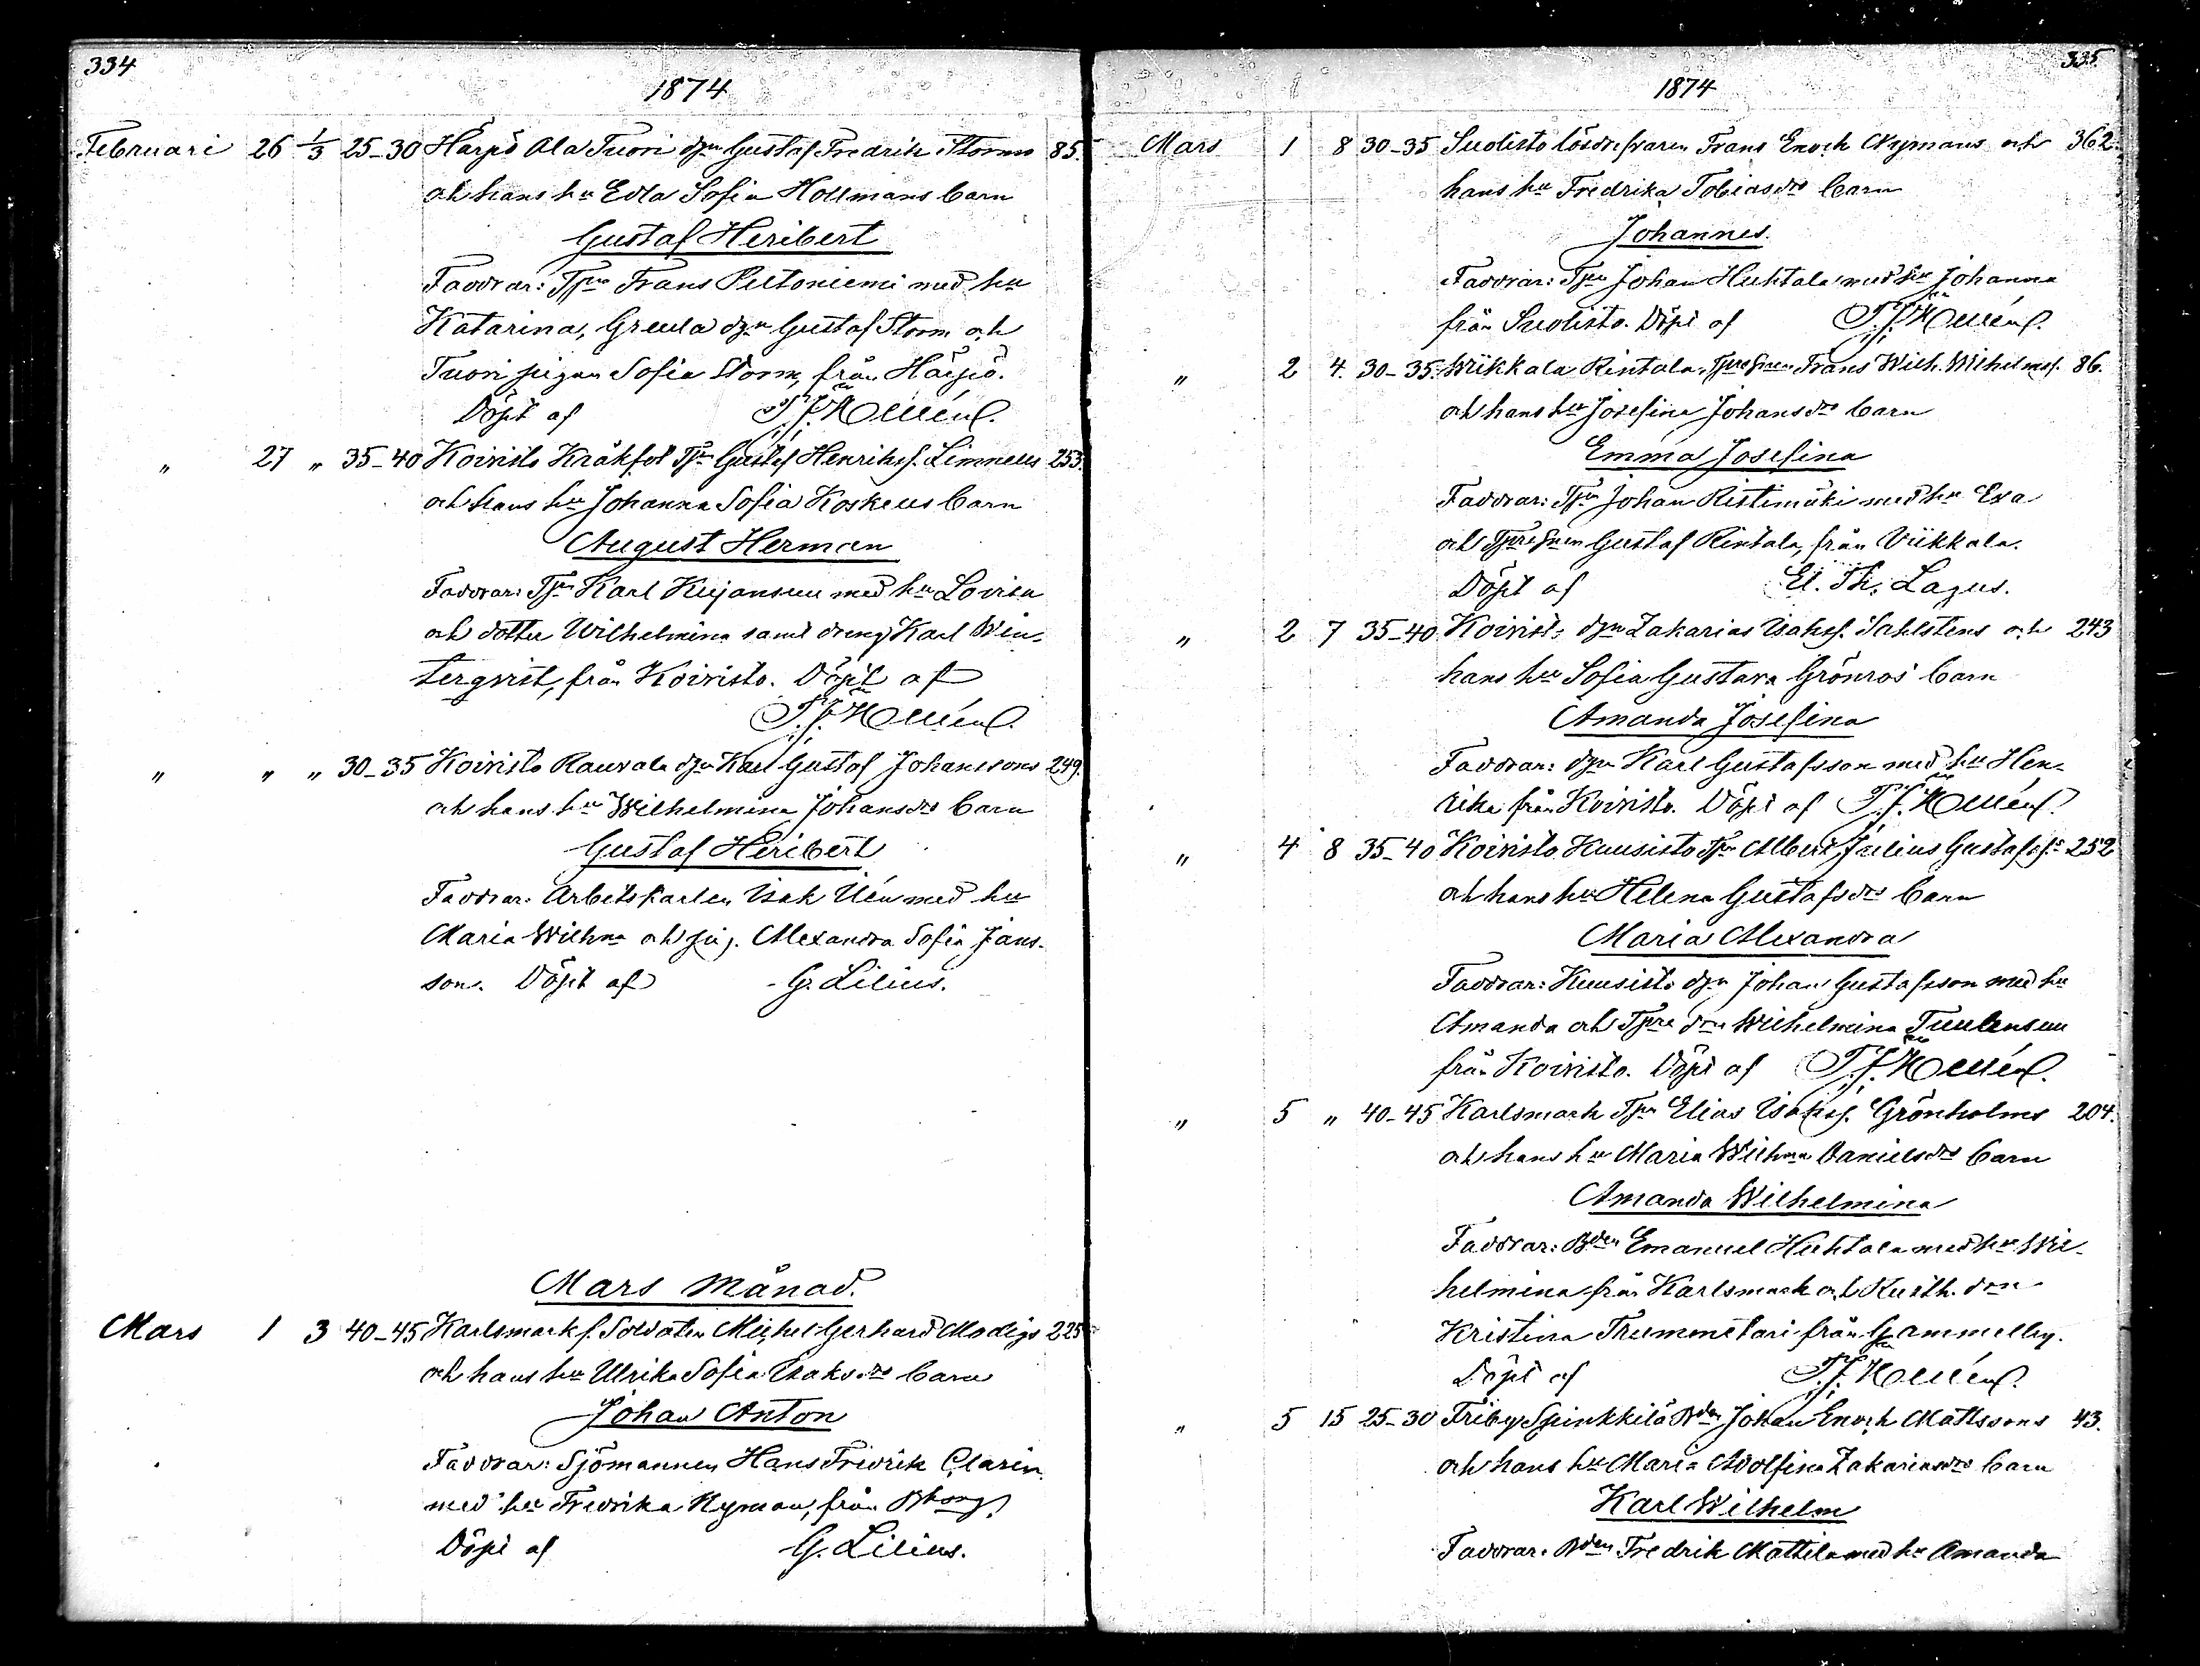 334
1874
Februari 26 1/3 25-30 Härpö Ala Tuori dgn Gustaf Fredrik Storms 85.
och hans hu Edla Sofia Hollmans barn
Gustaf Heribert
Faddrar: Tpn Frans Peltoniemi med hu
Katarina, Greula dgn Gustaf Storm och
Tuori pigan Sofia Storm, från Härpö.
Döpt af
27 " 35-40 Koivisto Kråkfot Tpn Gustaf Henriksf. Linneus 253.
och hans hu Johanna Sofia Koskeus barn
August Herman
Faddrar: Tpn Karl Kujansuu med hu Lovisa
och dotter Wilhelmina samt dreng Karl Win-
terqvist, från Koivisto. Döpt af
" " " 30-35 Koivisto Rauvala dgn Karl Gustaf Johanssons 249.
och hans hu Wilhelmina Johansdrs barn
Gustaf Heribert
Faddrar: Arbetskarlen Isak Uén med hu
Maria Wilhna och pig. Alexandra Sofia Jans-
son. Döpt af G. Lilius.
Mars Månad.
Mars 1 3 40-45 Karlsmark f. Soldaten Michel Gerhard Modigs 225
och hans hu Ulrika Sofia Isaksdrs barn
Johan Anton
Faddrar: Sjömannen Hans Fredrik Clarin
med hu Fredrika Nyman, från Bborg.
Döpt af G. Lilius.
335.
1874
Mars 1 8 30-35 Suolisto lösdrifvaren Frans Enoch Nymans och 362.
hans hu Fredrika Tobiasdrs barn
Johannes.
Faddrar: Tpn Johan Huhtala med hu Johanna
från Suolisto. Döpt af
" 2 4. 30-35. Wiikkala Rintala, Frans Wilh. Wilhelmsf. 86.
och hans hu Josefina Johansdrs barn
Emma Josefina
Faddrar: Tpn Johan Ristimäki med hu Eva
och Gustaf Rintala, från Viikkala.
Döpt af El. Th. Lagus.
" 2 7 35-40 Koivisto dgn Zakarias Isaksf. Sahlstens och 243
hans hu Sofia Gustava Grönros barn
Amanda Josefina
Faddrar: dgn Karl Gustafsson med hu Hen-
rika från Koivisto. Döpt af
" 4 8 35-40 Koivisto Kuusisto Tpn Albert Julius Gustafsfs 252
och hans hu Helena Gustafsdrs barn
Maria Alexandra
Faddrar: Kuusisto dgn Johan Gustafsson med hu
Amanda och Tpre drn Wilhelmina Tuulensuu
från Koivisto. Döpt af
" 5 " 40-45 Karlsmark Tpn Elias Isaksf. Grönholms 204.
och hans hu Maria Wilhna Danielsdrs barn
Amanda Wilhelmina
Faddrar: Bden Emanuel Huhtala med hu Wil-
helmina från Karlsmark och Rusth. drn
Kristina Trummetari från Gammelby.
Döpt af
" 5 15 25-30 Friby Spinkkilä Bden Johan Enoch Mattssons 43.
och hans hu Maria Adolfina Zakariasdrs barn
Karl Wilhelm
Faddrar: Bden Fredrik Mattila med hu Amanda